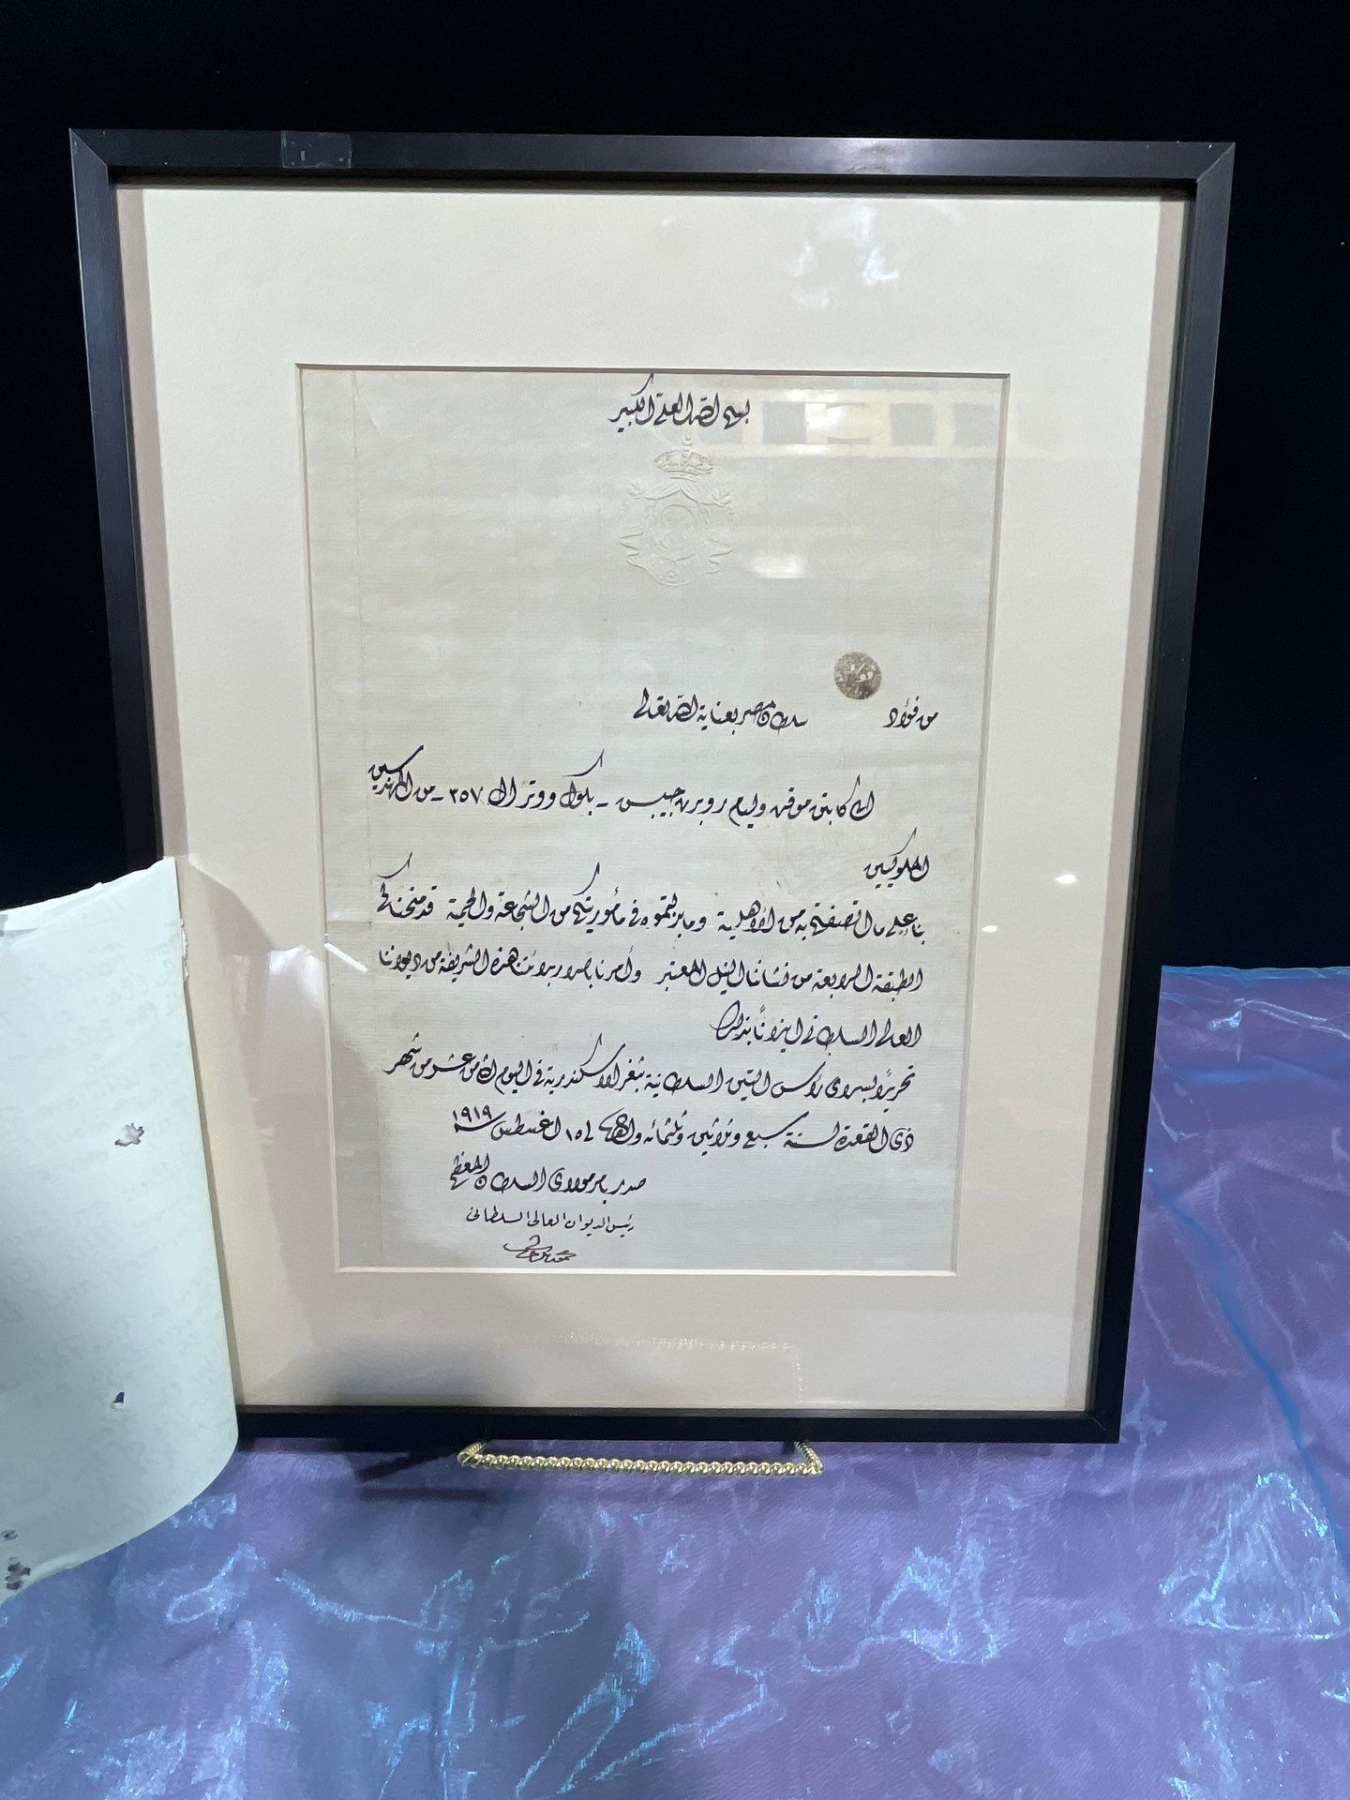 بسم الله العلي الكبير
من فؤاد سلطان مصر بعناية الله تعالى
الى كابتن موقت وليام روبرت جيبس - بلوك ووتر ال ٣٥٧ - من المهندسين
الملوكيين
بناء على ما اتصفتم به من الأهلية وما بذلتموه في مأموريتكم من الشجاعة والحمية قد منحناكم
الطبقة الرابعة من نشاننا النيل المعتبر وأمرنا باصدار براءتنا هذه الشريفة من ديواننا
العالى السلطانى ايذانًا بذلك
تحريرًا بسراى رأس التين السلطانية بثغر الاسكندرية فى اليوم الثامن عشر من شهر
ذى القعدة لسنة سبع وثلاثين وثلثمائة والف ١٥ اغسطس سنة ١٩١٩
صدر بامر مولاى السلطان المعظم
رئيس الديوان العالى السلطانى